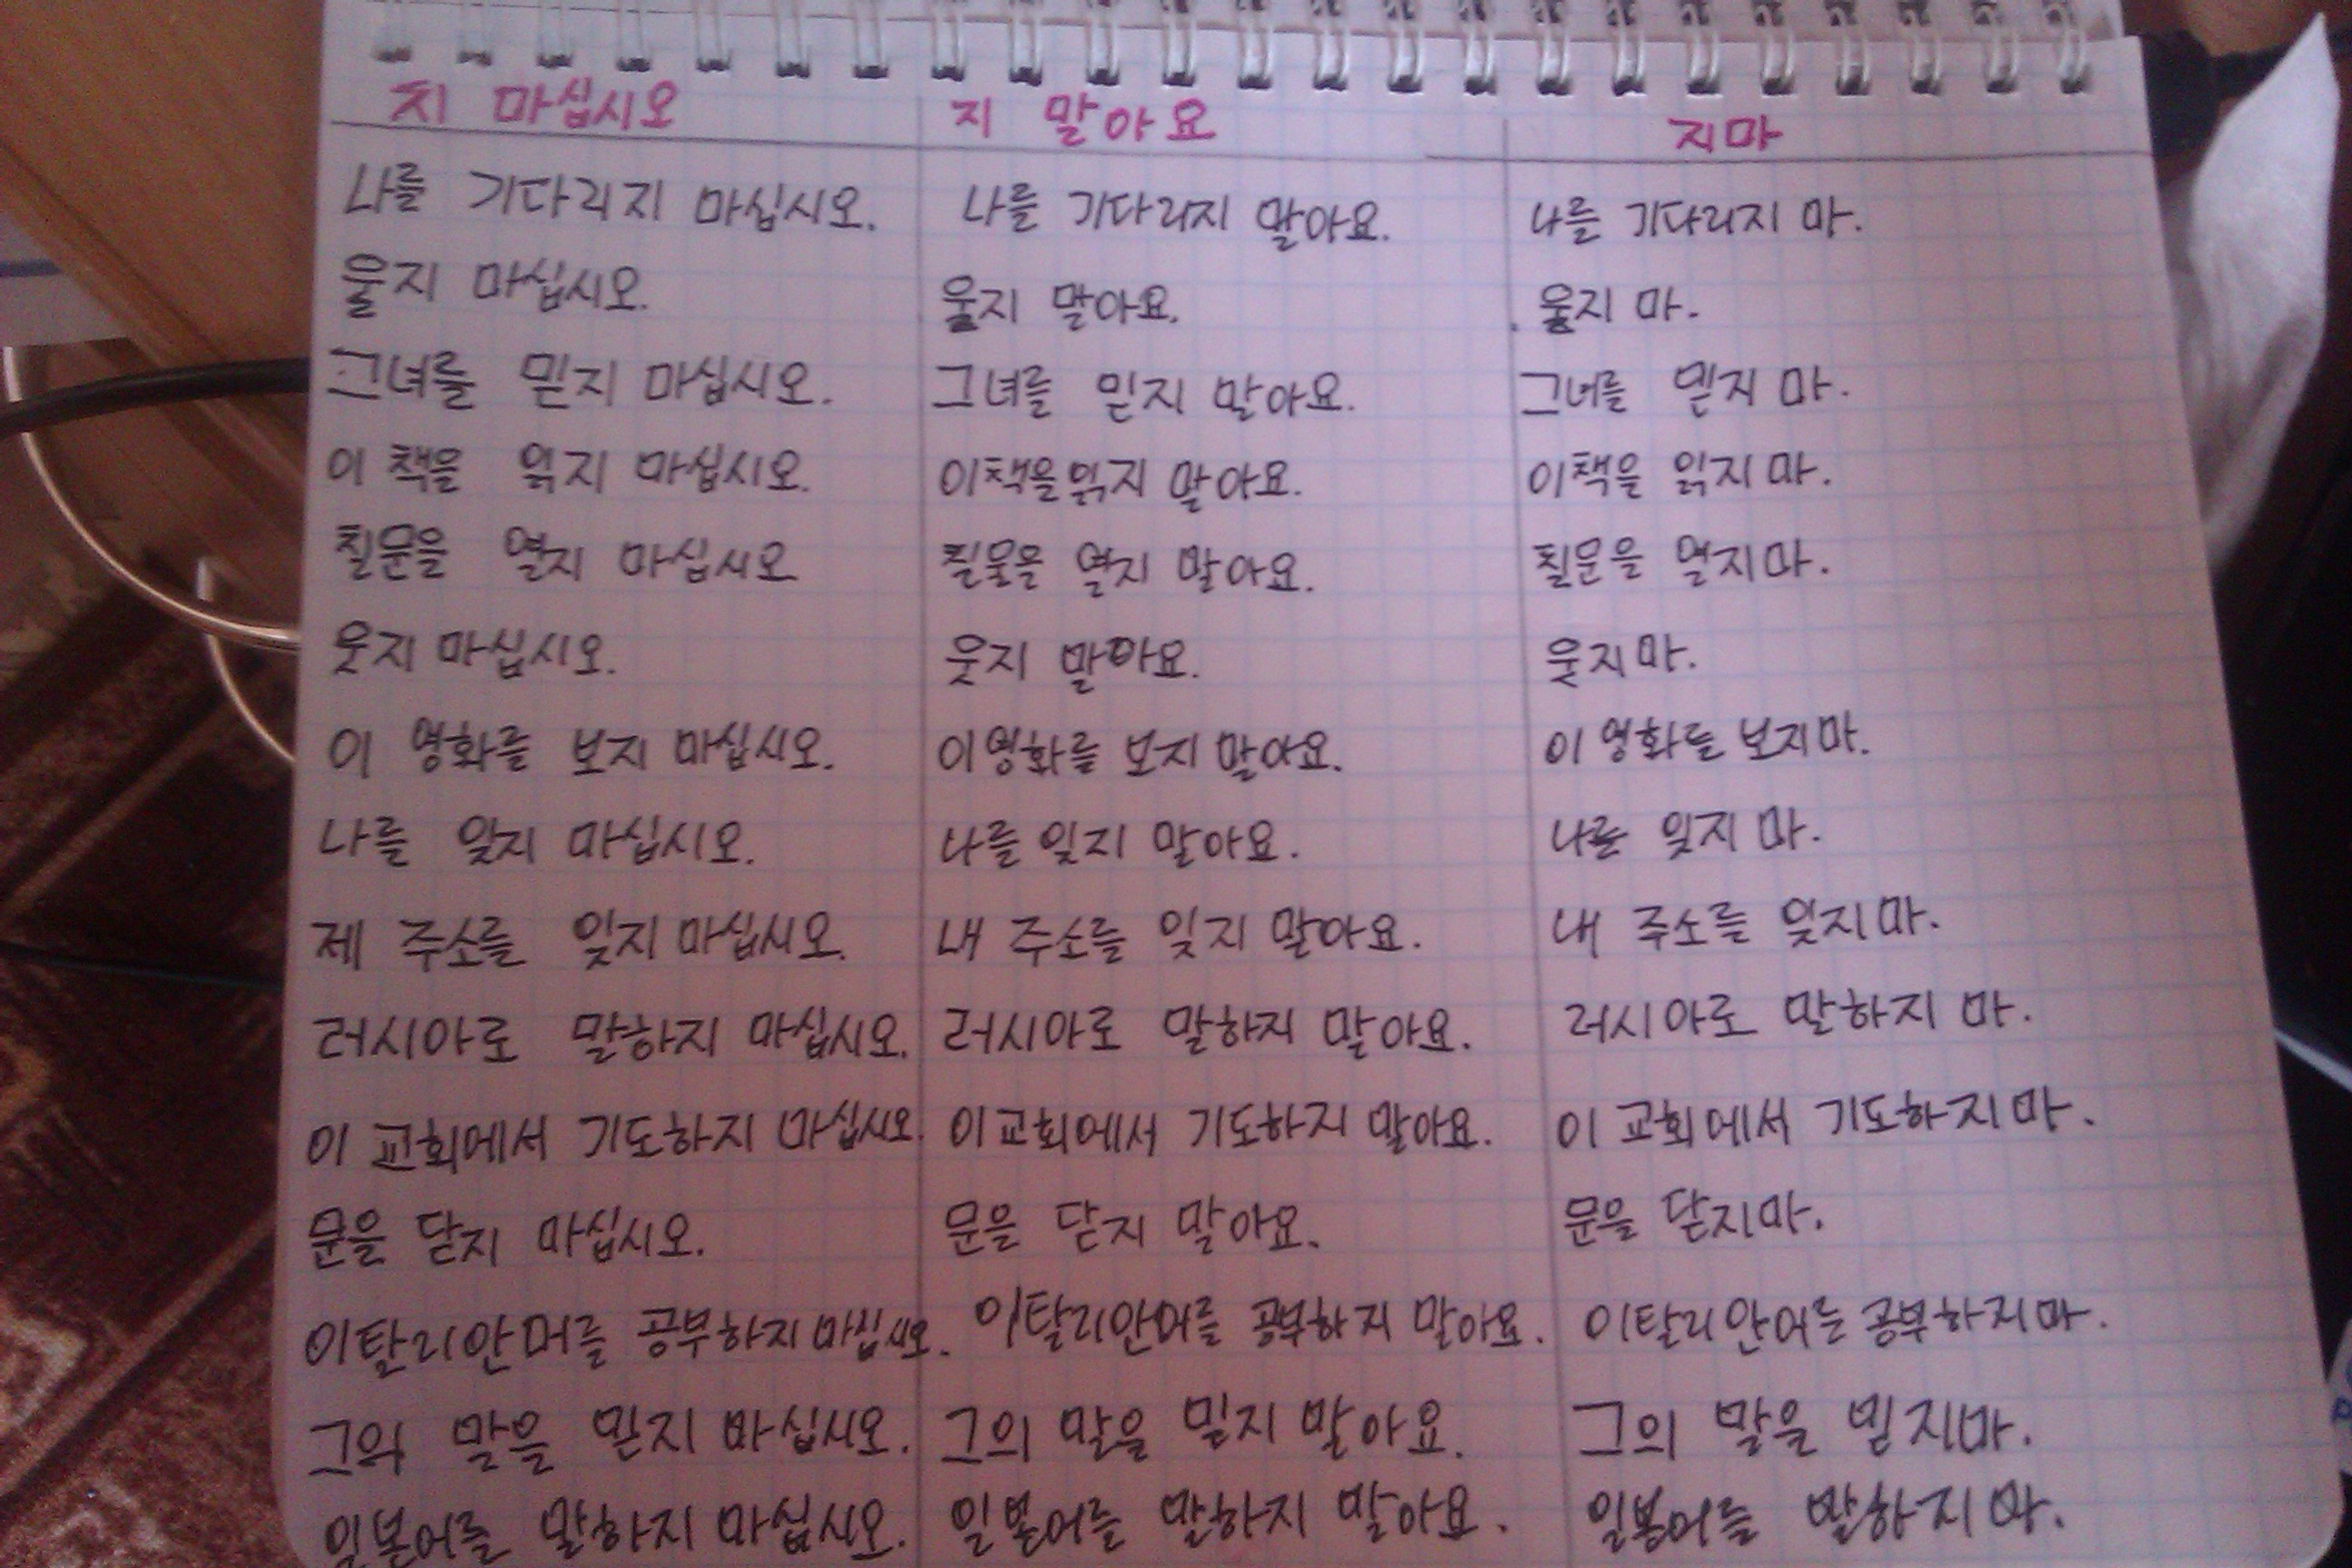 지 마십시오 지 말아요 지마
나를 기다리지 마십시오. 나를 기다리지 말아요. 나를 기다리지 마.
울지 마십시오. 울지 말아요. 울지 마.
그녀를 믿지 마십시오. 그녀를 믿지 말아요. 그녀를 믿지 마.
이 책을 읽지 마십시오. 이책을 읽지 말아요. 이책을 읽지마.
칠문을 열지 마십시오 칠문을 열지 말아요. 칠문을 열지마.
웃지 마십시오. 웃지 말아요. 웃지마.
이 영화를 보지 마십시오. 이영화를 보지 말아요. 이 영화를 보지마.
나를 잊지 마십시오. 나를 잊지 말아요. 나를 잊지 마.
제 주소를 잊지 마십시오. 내 주소를 잊지 말아요. 내 주소를 잊지마.
러시아로 말하지 마십시오. 러시아로 말하지 말아요. 러시아로 말하지 마.
이 교회에서 기도하지 마십시오. 이교회에서 기도하지 말아요. 이 교회에서 기도하지마.
문을 닫지 마십시오. 문을 닫지 말아요. 문을 닫지마.
이탈리안어를 공부하지 마십시오. 이탈리안어를 공부하지 말아요. 이탈리안어를 공부하지마.
그의 말을 믿지 마십시오. 그의 말을 믿지 말아요. 그의 말을 믿지마.
일본어를 말하지 마십시오. 일본어를 말하지 말아요. 일본어를 말하지마.